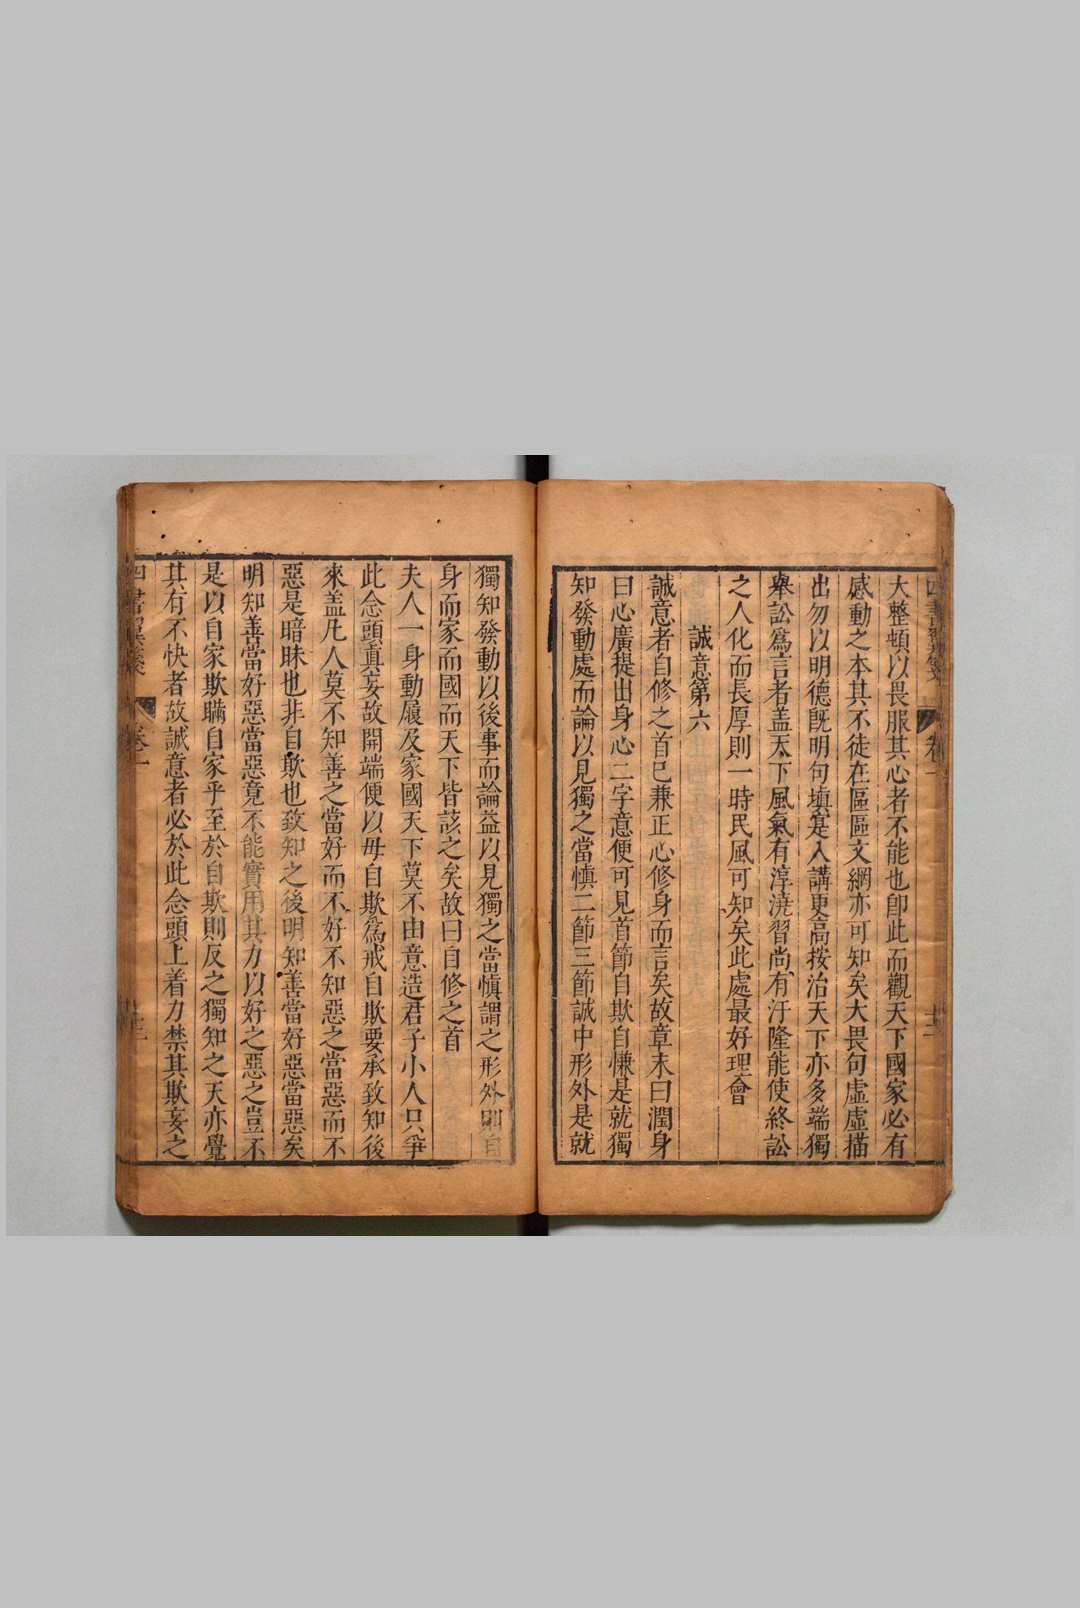 大整頓以畏服其心者不能也卽此而觀天下國家必有
感動之本其不徒在區區文網亦可知矣大畏句虛虛描
出勿以明德旣明句塡寔入講更高按治天下亦多端獨
舉訟爲言者盖天下風氣有淳澆習尚有汙隆能使終訟
之人化而長厚則一時民風可知矣此處最好理會
誠意第六
誠意者自修之首已兼正心修身而言矣故章末曰潤身
曰心廣提出身心二字意便可見首節自欺自慊是就獨
知發動處而論以見獨之當愼二節三節誠中形外是就
獨知發動以後事而論益以見獨之當愼謂之形外則自
身而家而國而天下皆該之矣故曰自修之首
夫人一身動履及家國天下莫不由意造君子小人只爭
此念頭眞妄故開端便以毋自欺爲戒自欺要承致知後
來盖凡人莫不知善之當好而不好不知惡之當惡而不
惡是暗昧也非自欺也致知之後明知善當好惡當惡矣
明知善當好惡當惡竟不能實用其力以好之惡之豈不
是以自家欺瞞自家乎至於自欺則反之獨知之天亦覺
其有不快者故誠意者必於此念頭上着力禁其欺妄之
卷一